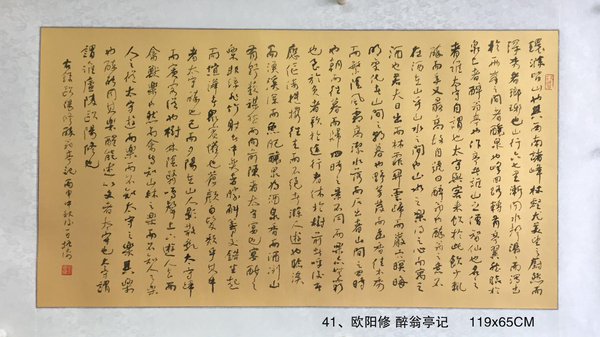 環滁皆山也其西南諸峰林壑尤美望之蔚然而
深秀者瑯琊也山行六七里漸聞水聲潺潺而瀉出
於兩峰之間者釀泉也峰回路轉有亭翼然臨於
泉上者醉翁亭也作亭者誰山之僧智仙也名之
者誰太守自謂也太守與客來飲於此飲少輒
醉而年又最高故自號曰醉翁也醉翁之意不
在酒在乎山水之間也山水之樂得之心而寓之
酒也若夫日出而林霏開雲歸而巖穴暝晦
明變化者山間之朝暮也野芳發而幽香佳木秀
而繁陰風霜高潔水落而石出者山間之四時
也朝而往暮而歸四時之景不同而樂亦無窮
也至於負者歌於途行者休於樹前者呼後者
應傴僂提攜往來而不絕者滁人遊也臨溪
而漁溪深而魚肥釀泉為酒泉香而酒洌山
肴野蔌雜然而前陳者太守宴也宴酣之
樂非絲非竹射者中弈者勝觥籌交錯起坐
而諠譁者眾賓懽也蒼顏白髮頹乎其中
者太守醉也已而夕陽在山人影散亂太守歸
而賓客從也樹林陰翳鳴聲上下遊人去而
禽鳥樂也然而禽鳥知山林之樂而不知人之樂
人知從太守遊而樂而不知太守之樂其樂
也醉能同其樂醒能述以文者太守也太守謂
謂誰廬陵歐陽修也
右錄歐陽修醉翁亭記丙申中秋
41、欧阳修 醉翁亭记 119x65CM